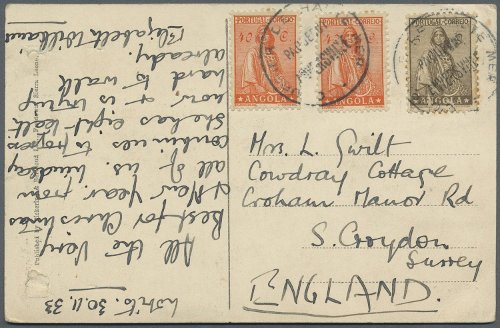 Lobito. 30.11.33
All the very
Best for Christmas
& New Year, from
all of us. Lindsay
continues to progress
now, she has eight teeth
& is trying
hard to walk
already.
Elizabeth
PORTUGAL-CORREIO
40 C
ANGOLA
PORTUGAL-CORREIO
40 C
ANGOLA
PORTUGAL-CORREIO
ANGOLA
PAQUEBOT
Mrs. L. Swift
Cowdray Cottage
Croham Manor Rd
S. Croydon
Surrey
ENGLAND.